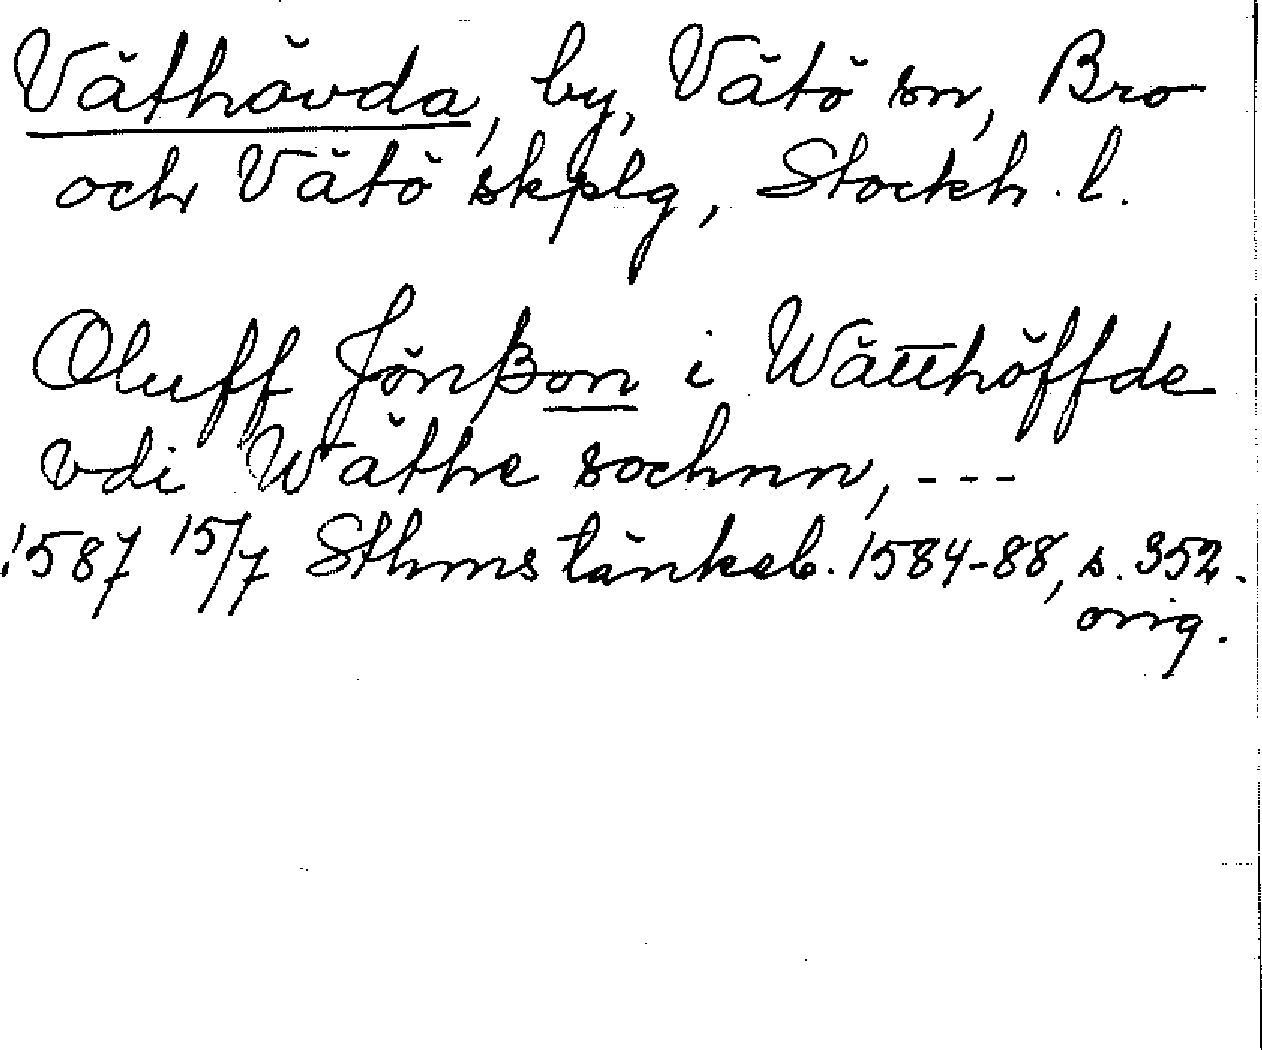 Väthövda, by, Vätö sn, Bro
och Vätö skplg, Stockh. l.
Oluff Jönßon i Wätthöffde
vdi Wäthe sochnn, ---
1587 15/7 Sthms tänkeb. 1584-88, s. 352.
orig.